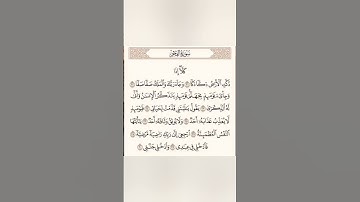 سورة الفجر
كَلَّا إِذَا
دُكَّتِ الْأَرْضُ دَكًّا دَكًّا ۝ وَجَاءَ رَبُّكَ وَالْمَلَكُ صَفًّا صَفًّا ۝
وَجِيءَ يَوْمَئِذٍ بِجَهَنَّمَ يَوْمَئِذٍ يَتَذَكَّرُ الْإِنسَانُ وَأَنَّى
لَهُ الذِّكْرَى ۝ يَقُولُ يَا لَيْتَنِي قَدَّمْتُ لِحَيَاتِي ۝ فَيَوْمَئِذٍ
لَّا يُعَذِّبُ عَذَابَهُ أَحَدٌ ۝ وَلَا يُوثِقُ وَثَاقَهُ أَحَدٌ ۝ يَا أَيَّتُهَا
النَّفْسُ الْمُطْمَئِنَّةُ ۝ ارْجِعِي إِلَى رَبِّكِ رَاضِيَةً مَّرْضِيَّةً ۝
فَادْخُلِي فِي عِبَادِي ۝ وَادْخُلِي جَنَّتِي ۝